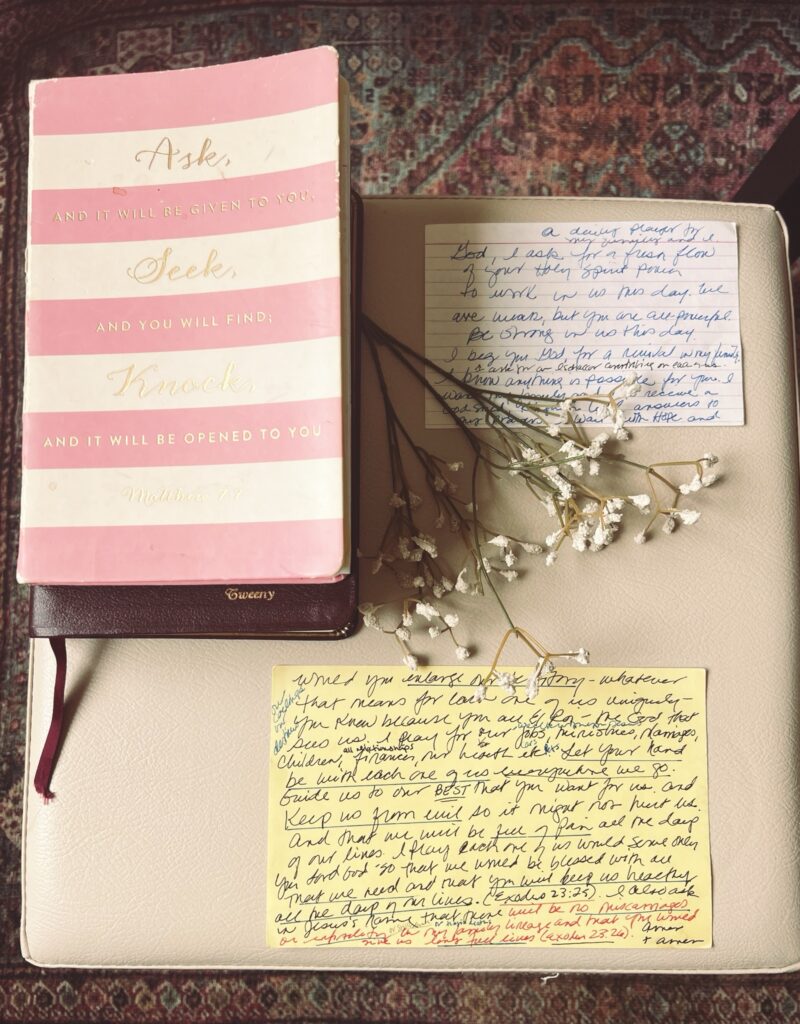 Ask,
AND IT WILL BE GIVEN TO YOU,
Seek,
AND YOU WILL FIND;
Knock,
AND IT WILL BE OPENED TO YOU
Matthew 7:7
Tweeny
a daily prayer for
my families and I.
God, I ask for a fresh flow
of your Holy Spirit power
to work in us this day. We
are weak, but you are all powerful.
Be strong in us this day.
I beg you God, for a revival in my family,
+ ask for an
I know anything is possible for you. I
receive a
answers to
with HOPE and
would you enlarge our territory - whatever
that means for each one of us uniquely -
You know because you are El Roi - the God that
sees us. I pray for our jobs, ministries, marriages,
all relationships
children, finances, our health etc. Let Your Hand
be with each one of us everywhere we go.
Guide us to our BEST that you want for us. and
Keep us from evil so it might not hurt us.
And that we will be free of pain all the days
of our lives. I pray each one of us would serve only
You Lord God so that we would be blessed with all
that we need and that you will keep us healthy
all the days of our lives. (Exodus 23:25). I also ask
in Jesus's name that there will be no miscarriages
or infertility in my family lineage and that you would
give us long full lives (Exodus 23:26). Amen
+ amen